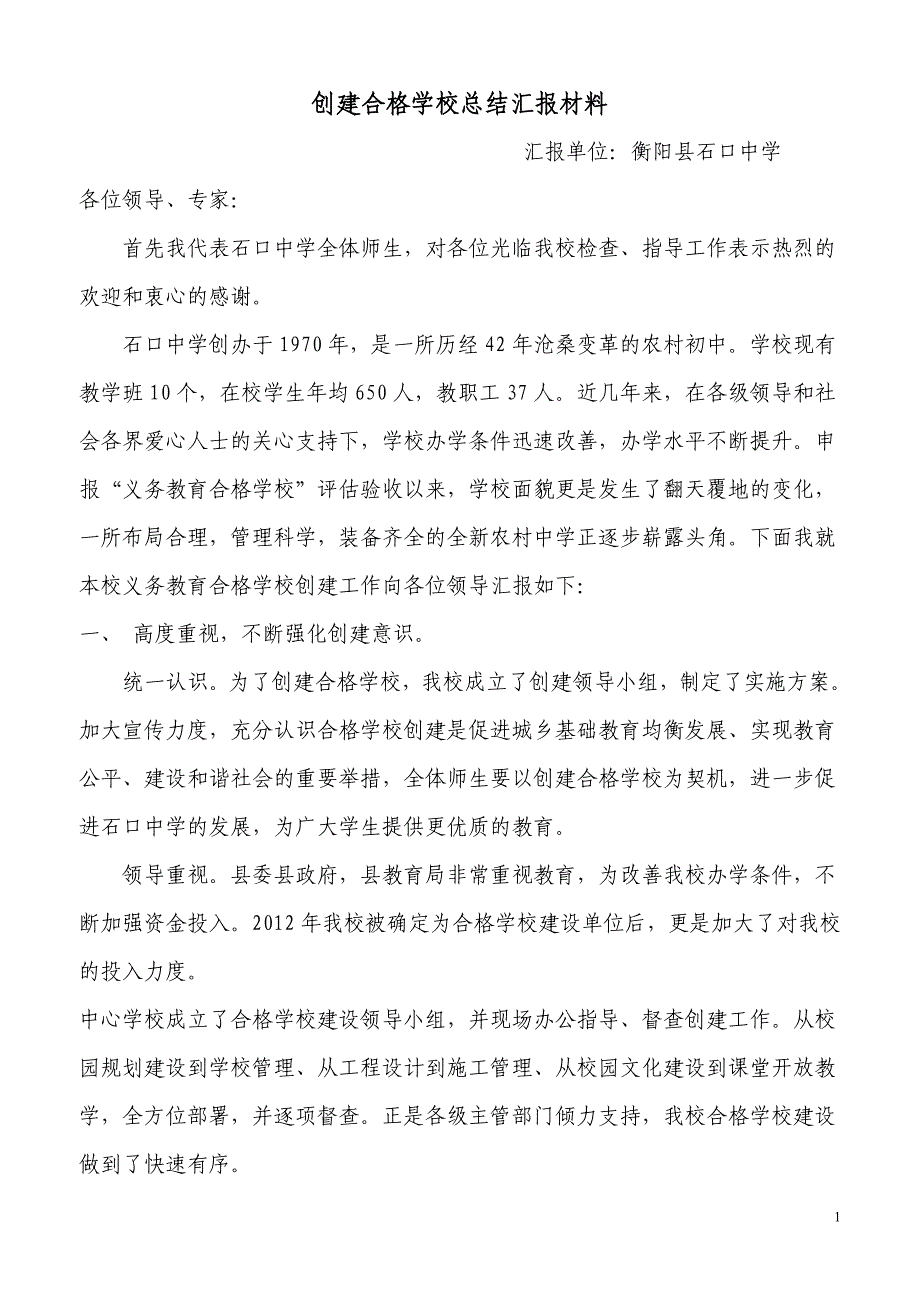 创建合格学校总结汇报材料
汇报单位：衡阳县石口中学
各位领导、专家：
首先我代表石口中学全体师生，对各位光临我校检查、指导工作表示热烈的
欢迎和衷心的感谢。
石口中学创办于 1970 年，是一所历经 42 年沧桑变革的农村初中。学校现有
教学班 10 个，在校学生年均 650 人，教职工 37 人。近几年来，在各级领导和社
会各界爱心人士的关心支持下，学校办学条件迅速改善，办学水平不断提升。申
报“义务教育合格学校”评估验收以来，学校面貌更是发生了翻天覆地的变化，
一所布局合理，管理科学，装备齐全的全新农村中学正逐步崭露头角。下面我就
本校义务教育合格学校创建工作向各位领导汇报如下：
一、 高度重视，不断强化创建意识。
统一认识。为了创建合格学校，我校成立了创建领导小组，制定了实施方案。
加大宣传力度，充分认识合格学校创建是促进城乡基础教育均衡发展、实现教育
公平、建设和谐社会的重要举措，全体师生要以创建合格学校为契机，进一步促
进石口中学的发展，为广大学生提供更优质的教育。
领导重视。县委县政府，县教育局非常重视教育，为改善我校办学条件，不
断加强资金投入。2012 年我校被确定为合格学校建设单位后，更是加大了对我校
的投入力度。
中心学校成立了合格学校建设领导小组，并现场办公指导、督查创建工作。从校
园规划建设到学校管理、从工程设计到施工管理、从校园文化建设到课堂开放教
学，全方位部署，并逐项督查。正是各级主管部门倾力支持，我校合格学校建设
做到了快速有序。
1